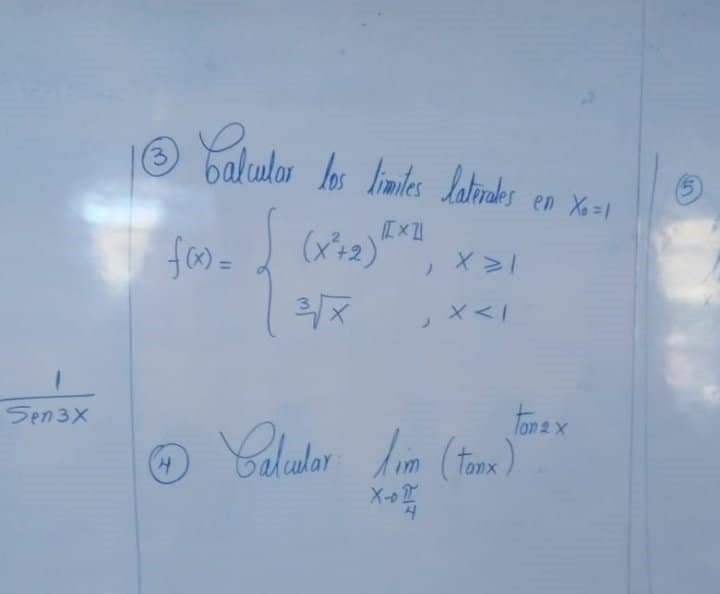 ③ Calcular los límites laterales en x₀=1
f(x) = { (x²+2)^⟦x⟧ , x ≥ 1
∛x , x < 1
1
Sen3x
④ Calcular: lim (tanx)^tan2x
x→π/4
⑤